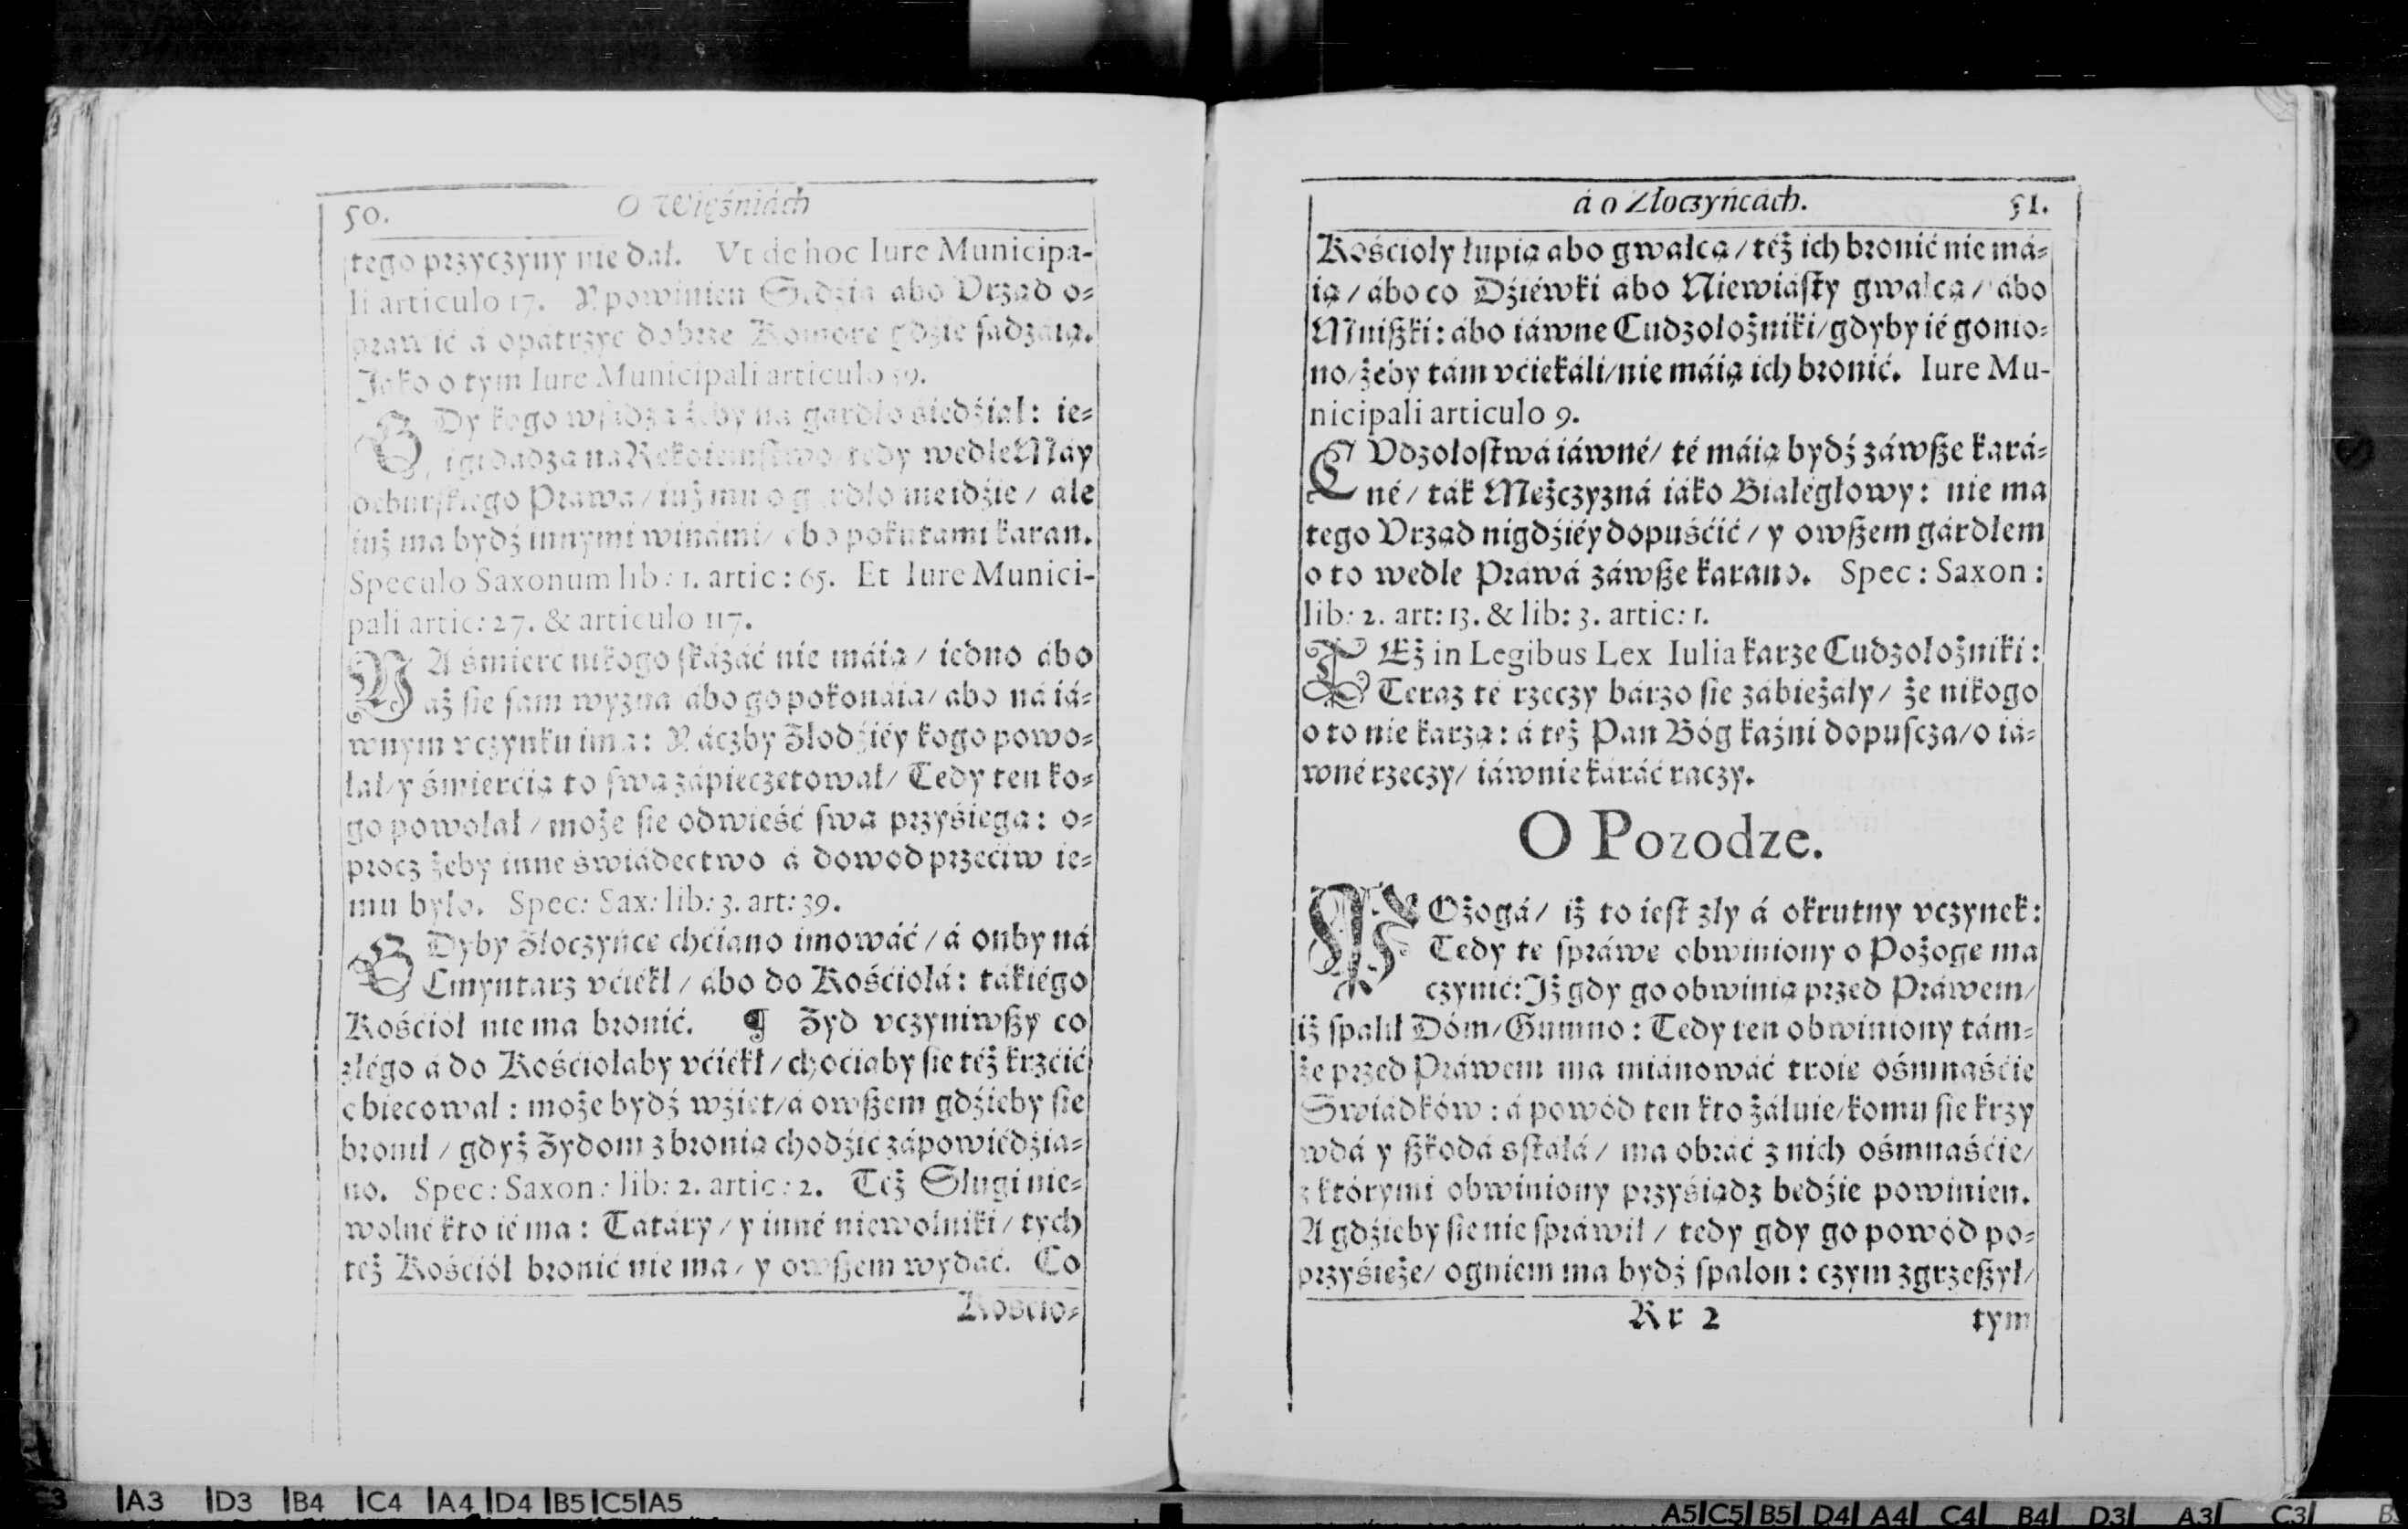 50. O Więźniách
tego przyczyny nie dał. Vt de hoc Iure Municipa-
li articulo 17. Y powinien Sędzia abo Vrząd o-
práwić á opátrzyć dobrze Komorę gdzie sadzáią.
Jáko o tym Iure Municipali articulo 59.
GDy kogo wsádzą żeby ná gárdło siedźiał: ie-
wedle May
deburskiego Prawa / iuż mu o gárdło nie idźie / ale
iuż ma bydź innymi winámi / abo pokutami karan.
Speculo Saxonum lib: 1. artic: 65. Et Iure Munici-
pali artic: 27. & articulo 117.
NA śmierć nikogo skázáć nie máią / iedno ábo
aż sie sam wyzna ábo go pokonáią / abo ná iá-
wnym vczynku imą: Y áczby Złodźiéy kogo powo-
łał / y śmierćią to swą zápieczetował / Tedy ten ko-
go powołał / może sie odwieść swą przyśiegą: o-
procz żeby inne świádectwo á dowod przećiw ie-
mu było. Spec: Sax: lib: 3. art: 39.
GDyby Złoczyńce chćiano imowáć / á onby ná
Cmyntarz vćiekł / ábo do Kośćiołá: tákiégo
Kośćioł nie ma bronić. ¶ Żyd vczyniwszy co
złégo á do Kośćiołaby vćiékł / choćiaby sie téż krzćić
obiecował: może bydź wźiet / á owszem gdźieby sie
bronił / gdyż Żydom z bronią chodźić zápowiédźia-
no. Spec: Saxon: lib: 2. artic: 2. Téż Sługi nie-
wolné kto ié ma: Tatáry / y inné niewolniki / tych
też Kośćiół bronić nie ma / y owszem wydáć. Co
Kośćio-
á o Złoczyńcách. 51.
Kośćioły łupią abo gwałcą / téż ich bronić nie má-
ią / ábo co Dźiéwki ábo Niewiásty gwałcą / ábo
Mniszki: ábo iáwne Cudzołożniki / gdyby ié gonio-
no / żeby tám vćiekáli / nie máią ich bronić. Iure Mu-
nicipali articulo 9.
CVdzołostwá iáwné / té máią bydź záwsze kará-
né / ták Mężczyzná iáko Białégłowy: nie ma
tego Vrząd nigdźiéy dopuśćić / y owszem gárdłem
o to wedle Práwá záwsze karano. Spec: Saxon:
lib: 2. art: 13. & lib: 3. artic: 1.
TEż in Legibus Lex Iulia karze Cudzołożniki:
Teraz té rzeczy bárzo sie zábieżáły / że nikogo
o to nie karzą: á też Pan Bóg kaźni dopuscza / o iá-
wné rzeczy / iáwnie káráć raczy.
O Pozodze.
POżogá / iż to iest zły á okrutny vczynek:
Tedy te spráwe obwiniony o Pożoge ma
czynić: Jż gdy go obwinią przed Práwem /
iż spalił Dóm / Gumno: Tedy ten obwiniony tám-
że przed Práwem ma miánowáć troie ośmnaśćie
Swiádków: á powód ten kto żáluie / komu sie krzy
wdá y szkodá sstałá / ma obráć z nich ośmnaśćie /
z którymi obwiniony przyśiądz bedźie powinien.
A gdźieby sie nie spráwił / tedy gdy go powód po-
przyśieże / ogniem ma bydź spalon: czym zgrzeszył /
Rr 2 tym
A3 D3 B4 C4 A4 D4 B5 C5 A5
A5 C5 B5 D4 A4 C4 B4 D3 A3 C3